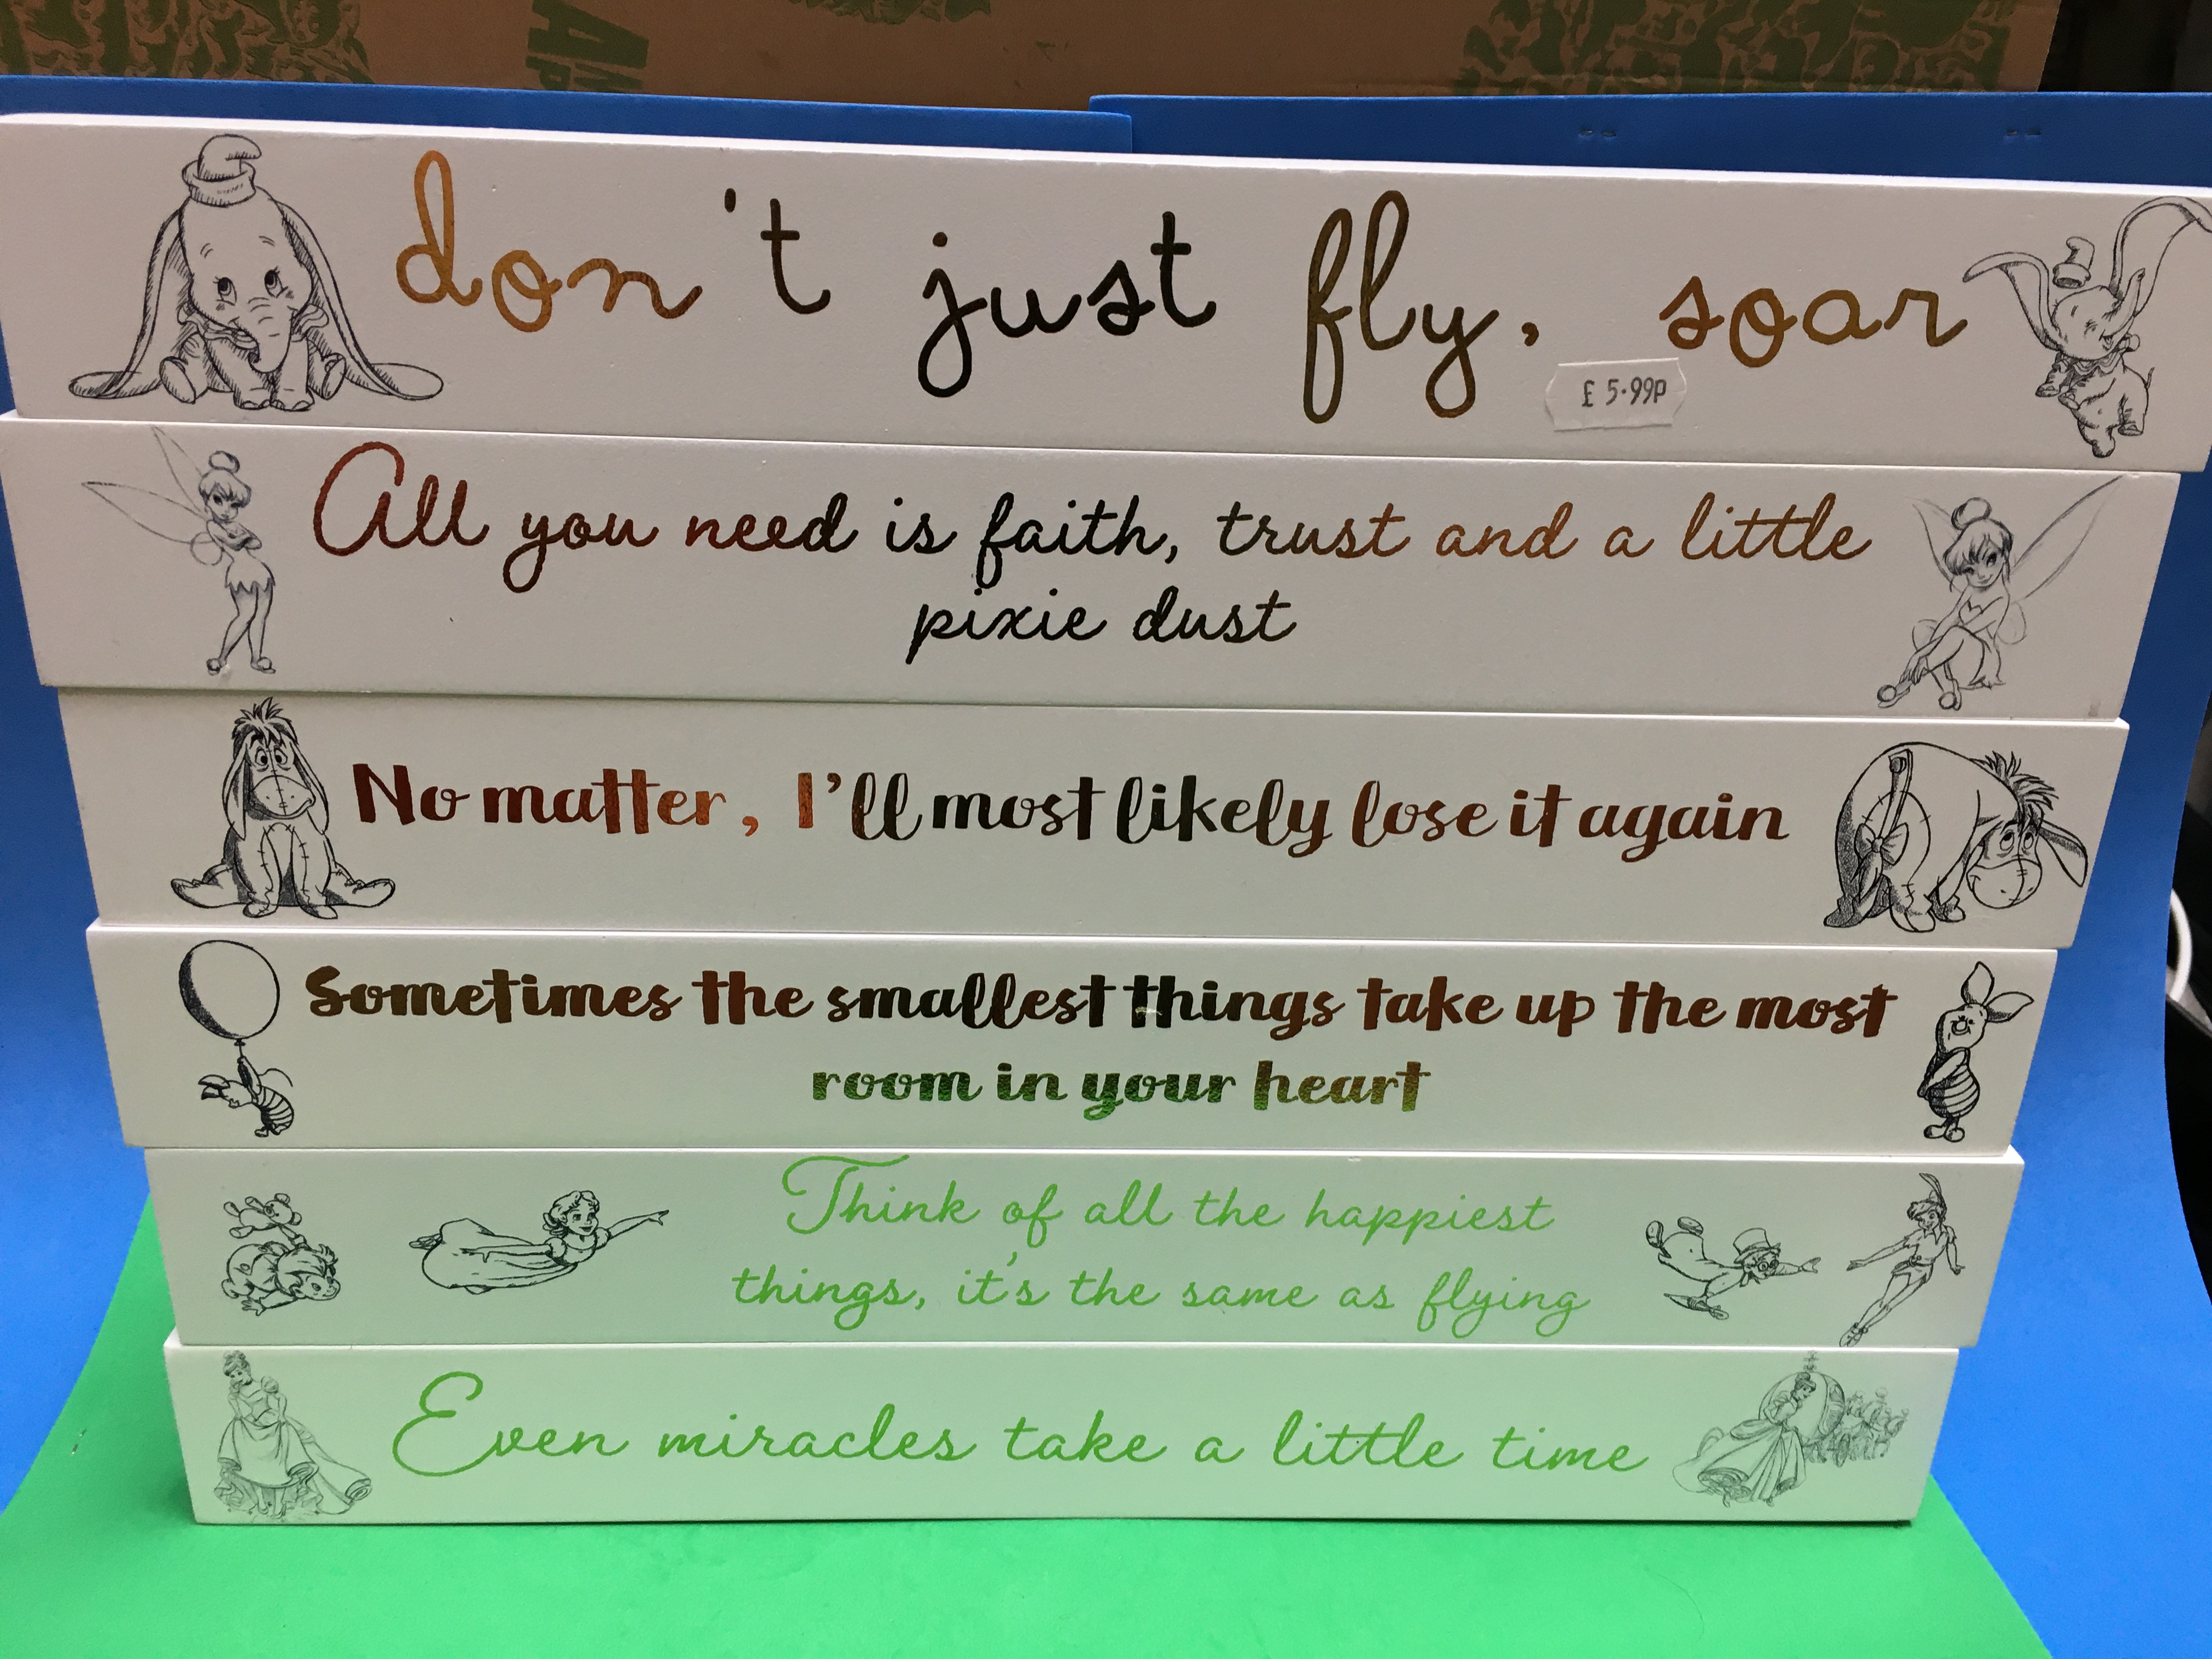 don't just fly, soar
£5.99P
All you need is faith, trust and a little
pixie dust
No matter, I'll most likely lose it again
Sometimes the smallest things take up the most
room in your heart
Think of all the happiest
things, it's the same as flying
Even miracles take a little time